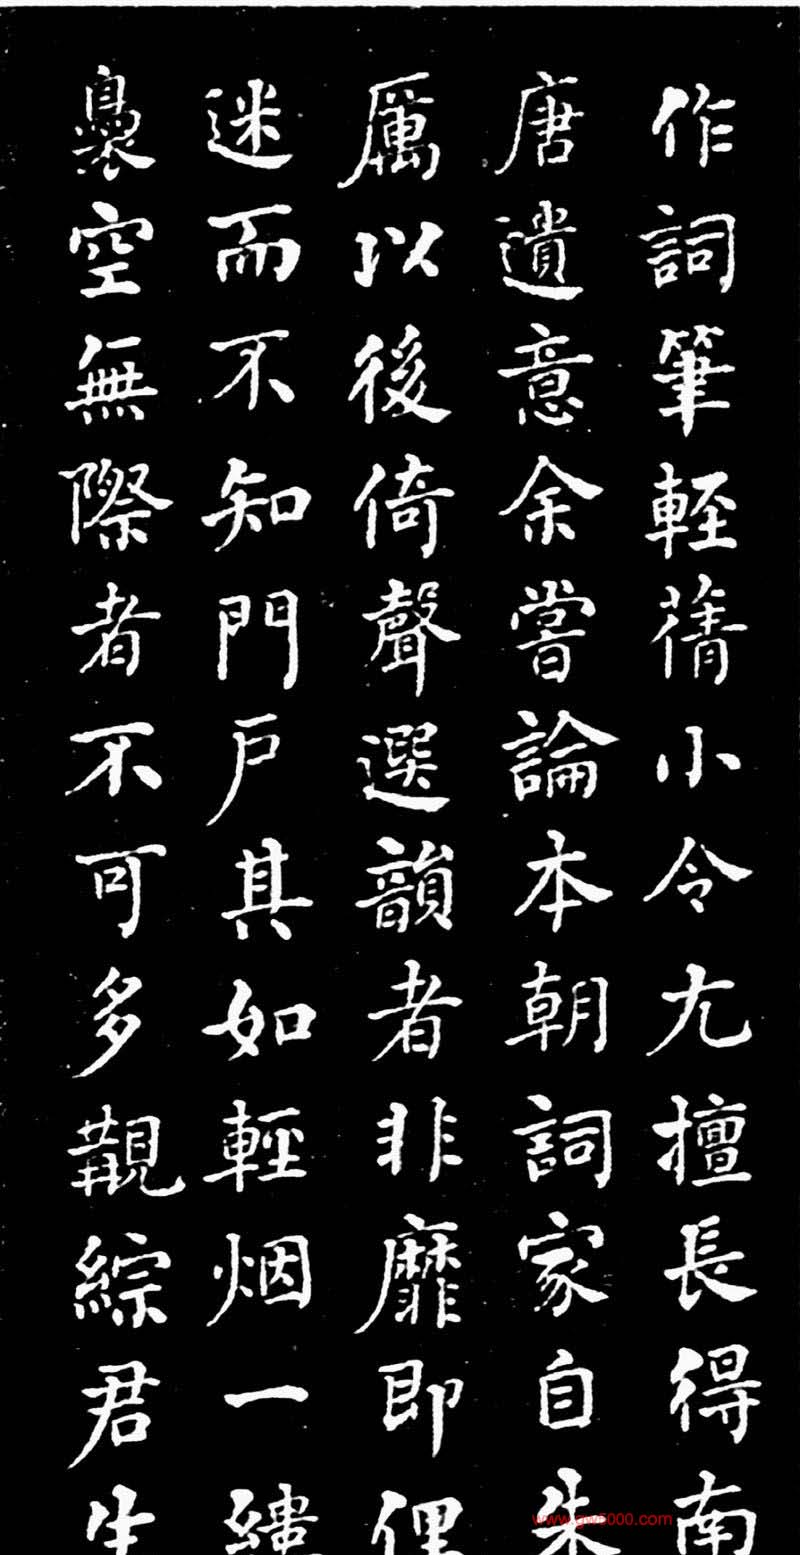 作詞筆輕蒨小令尤擅長得南
唐遺意余嘗論本朝詞家自朱
厲以後倚聲選韻者非靡即俚
迷而不知門戶其如輕烟一縷
裊空無際者不可多觀綜君生
www.gw5000.com